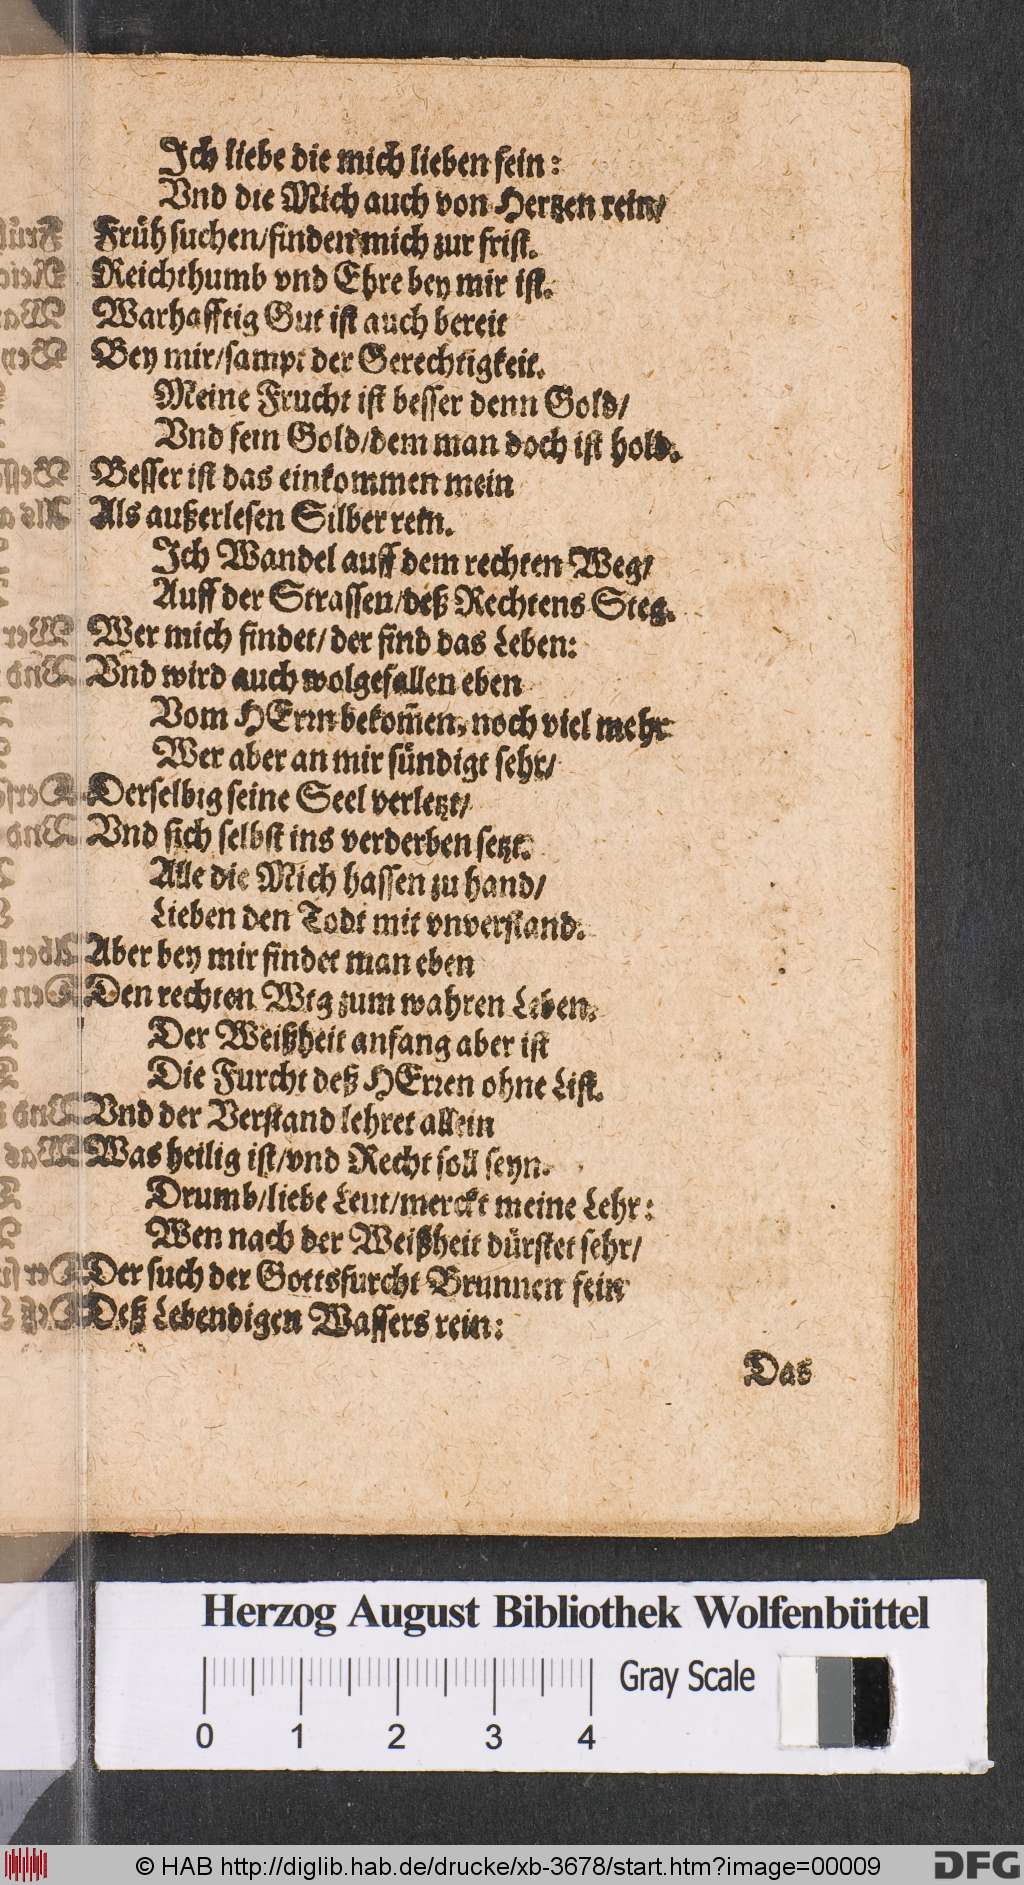 Ich liebe die mich lieben fein:
Vnd die Mich auch von Hertzen rein/
Früh suchen/finden mich zur frist.
Reichthumb vnd Ehre bey mir ist.
Warhafftig Gut ist auch bereit
Bey mir/sampt der Gerechtigkeit.
Meine Frucht ist besser denn Gold/
Vnd fein Gold/dem man doch ist hold.
Besser ist das einkommen mein
Als außerlesen Silber rein.
Ich Wandel auff dem rechten Weg/
Auff der Strassen/deß Rechtens Steg.
Wer mich findet/der find das Leben:
Vnd wird auch wolgefallen eben
Vom HErrn bekom̃en, noch viel mehr
Wer aber an mir sündigt sehr/
Derselbig seine Seel verletzt/
Vnd sich selbst ins verderben setzt.
Alle die Mich hassen zu hand/
Lieben den Todt mit vnverstand.
Aber bey mir findet man eben
Den rechten Weg zum wahren Leben.
Der Weißheit anfang aber ist
Die Furcht deß HErren ohne List.
Vnd der Verstand lehret allein
Was heilig ist/vnd Recht soll seyn.
Drumb/liebe Leut/merckt meine Lehr:
Wen nach der Weißheit dürstet sehr/
Der such der Gottsfurcht Brunnen fein
Deß Lebendigen Wassers rein:
Das
Herzog August Bibliothek Wolfenbüttel
Gray Scale
0 1 2 3 4
© HAB http://diglib.hab.de/drucke/xb-3678/start.htm?image=00009
DFG